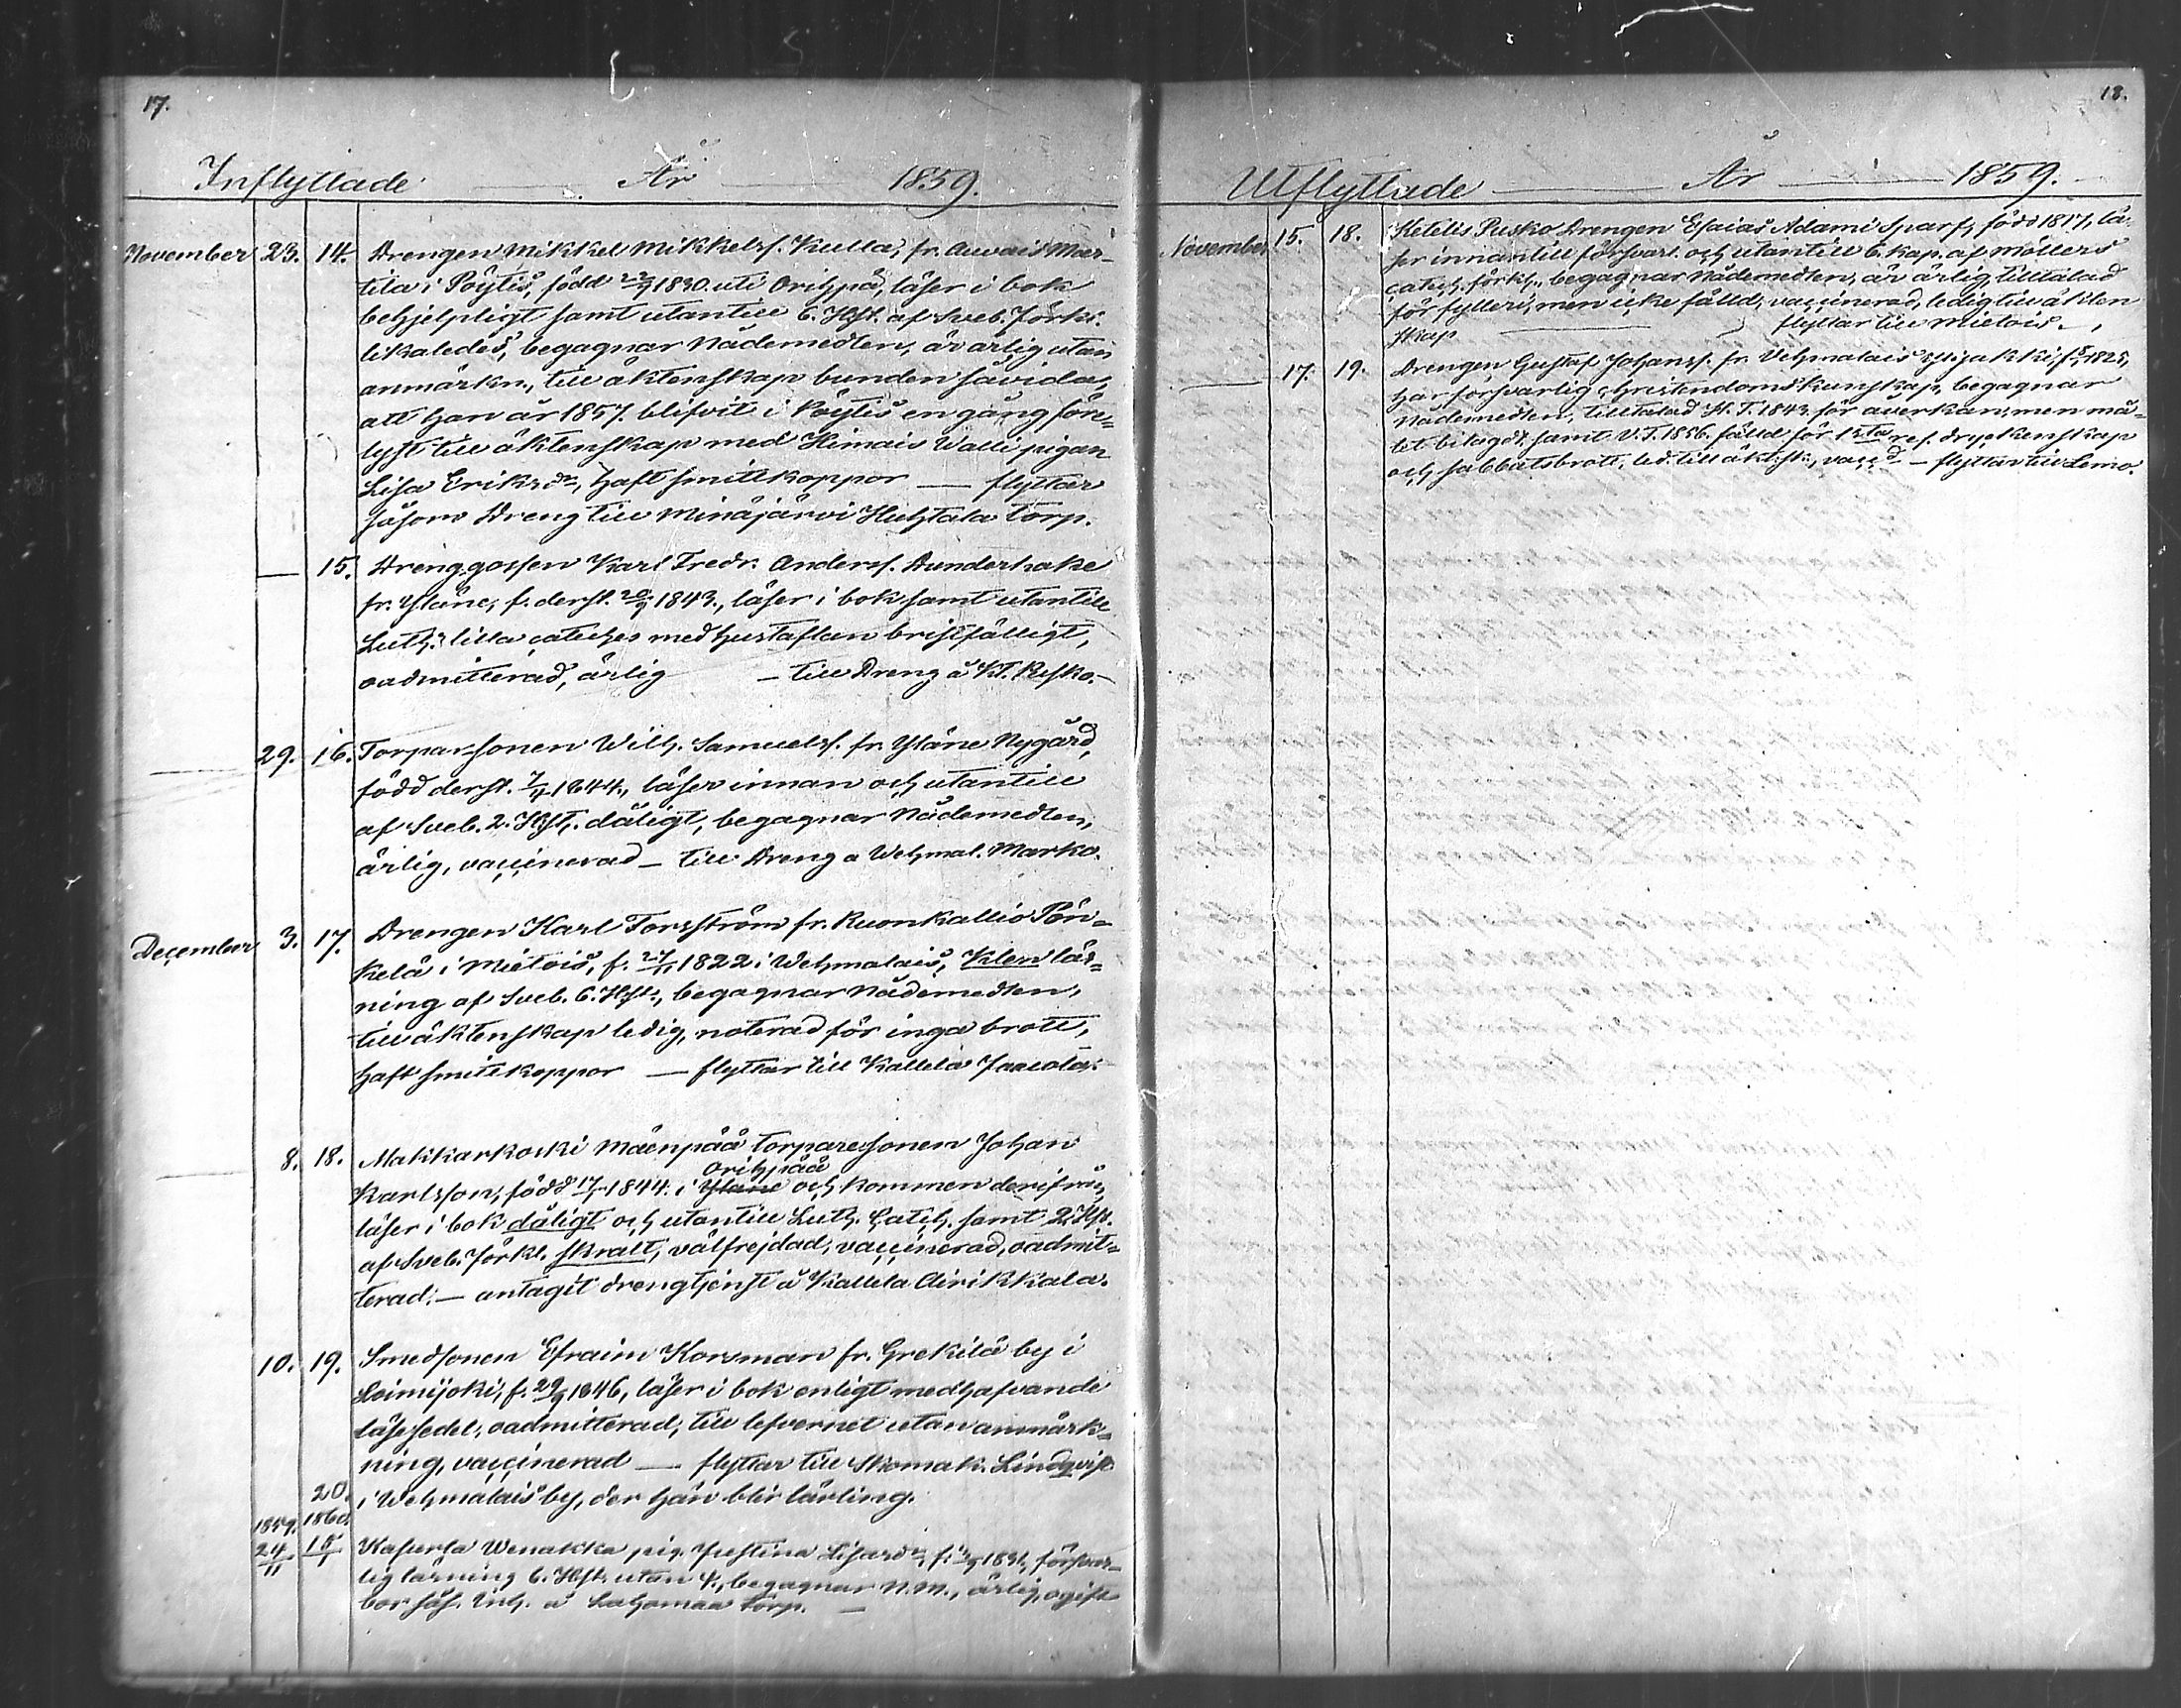 17.
Inflyttade År 1859.
November 23. 14. Drengen Mikkel Mikkelss. Kulla, fr. Auvais Mar-
tila i Pöytis, född 22/9 1830. uti Orihpä, läser i bok
behjelpligt samt utantill 6. Hfst. af Sveb. förkl.
likaledes, begagnar Nådemedlen, är ärlig utan
anmärkn., till äktenskap bunden såvida,
att han år 1857. blifvit i Pöytis en gång fön-
lyst till äktenskap med Heinais Walli pigan
Lisa Eriksdr, haft smittkoppor — flyttar
såsom Dreng till Minäjärvi Huhtala torp.
— 15. Drenggossen Karl Fredr. Anderss. Dunderhake
fr. Yläne, f. derst. 20/9 1843., läser i bok samt utantill
Luth. lilla cateches med hustaflan bristfälligt,
oadmitterad, ärlig — till Dreng å Kt. Resko. —
— 29. 16. Torparsonen Wilh. Samuelss. fr. Yläne Nygård,
född derst. 7/4 1844., läser innan och utantill
af Sveb. 2. Hfst. dåligt, begagnar Nådemedlen,
ärlig, vaccinerad — till Dreng å Wehmal. Marko.
December 3. 17. Drengen Karl Forsström fr. Ruonkallio Pön-
kelä i Mietois, f. 27/11 1822 i Wehmalais, Klen läs-
ning af Sveb. 6. Hfst., begagnar Nådemedlen,
till äktenskap ledig, noterad för inga brott,
haft smittkoppor — flyttar till Kallela Jaacola.
— 8. 18. Makkarkoski Mäenpää torparesonen Johan
Orihpää
Karlsson, född 17/1 1844. i Yläne och kommen derifrån,
läser i bok dåligt och utantill Luth. Catch. samt 2. Hfst.
af Sveb. förkl. skralt, välfrejdad, vaccinerad, oadmit-
terad. — antagit drengtjenst å Kallela Airikkala.
10. 19. Smedsonen Efraim Korsman fr. Grekilä by i
Loimijoki, f. 29/9 1846, läser i bok enligt medhafvande
läsesedel, oadmitterad, till lefvernet utan anmärk-
ning, vaccinerad — flyttar till Skomak. Lindqvist
20. i Wehmalais by, der han blir lärling.
1859. 1860.
24/11 15/1 Wenakka pig. Justina Lisasdr, 1831, försvar-
lig läsning 6. Hfst. utan begagnar N.M., ärlig, ogift
bor sås. Inh. å Lahomaa torp. —
18.
Utflyttade — År — 1859.
November 15. 18. Ketelis Pusko Drengen Esaias Adami Sparf, född 1817, lä-
ser innantill försvarl. och utantill 6. kap. af Möllers
catech. förkl., begagnar Nådemedlen, är ärlig, tilltalad
för fylleri, men icke fälld, vaccinerad, ledig till äkten
skap — flyttar till Mietois. —
— 17. 19. Drengen Gustaf Johanss. fr. Vehmalais Yijakki, 1825,
har försvarlig christendomskunskap, begagnar
Nådemedlen, tilltalad H.T. 1843. för åverkan, men må-
let bilagdt, samt V.T. 1856. fälld för 1sta res. dryckenskap
och sabbatsbrott, led. till äktsk., vacc.d — flyttar till Lemo.